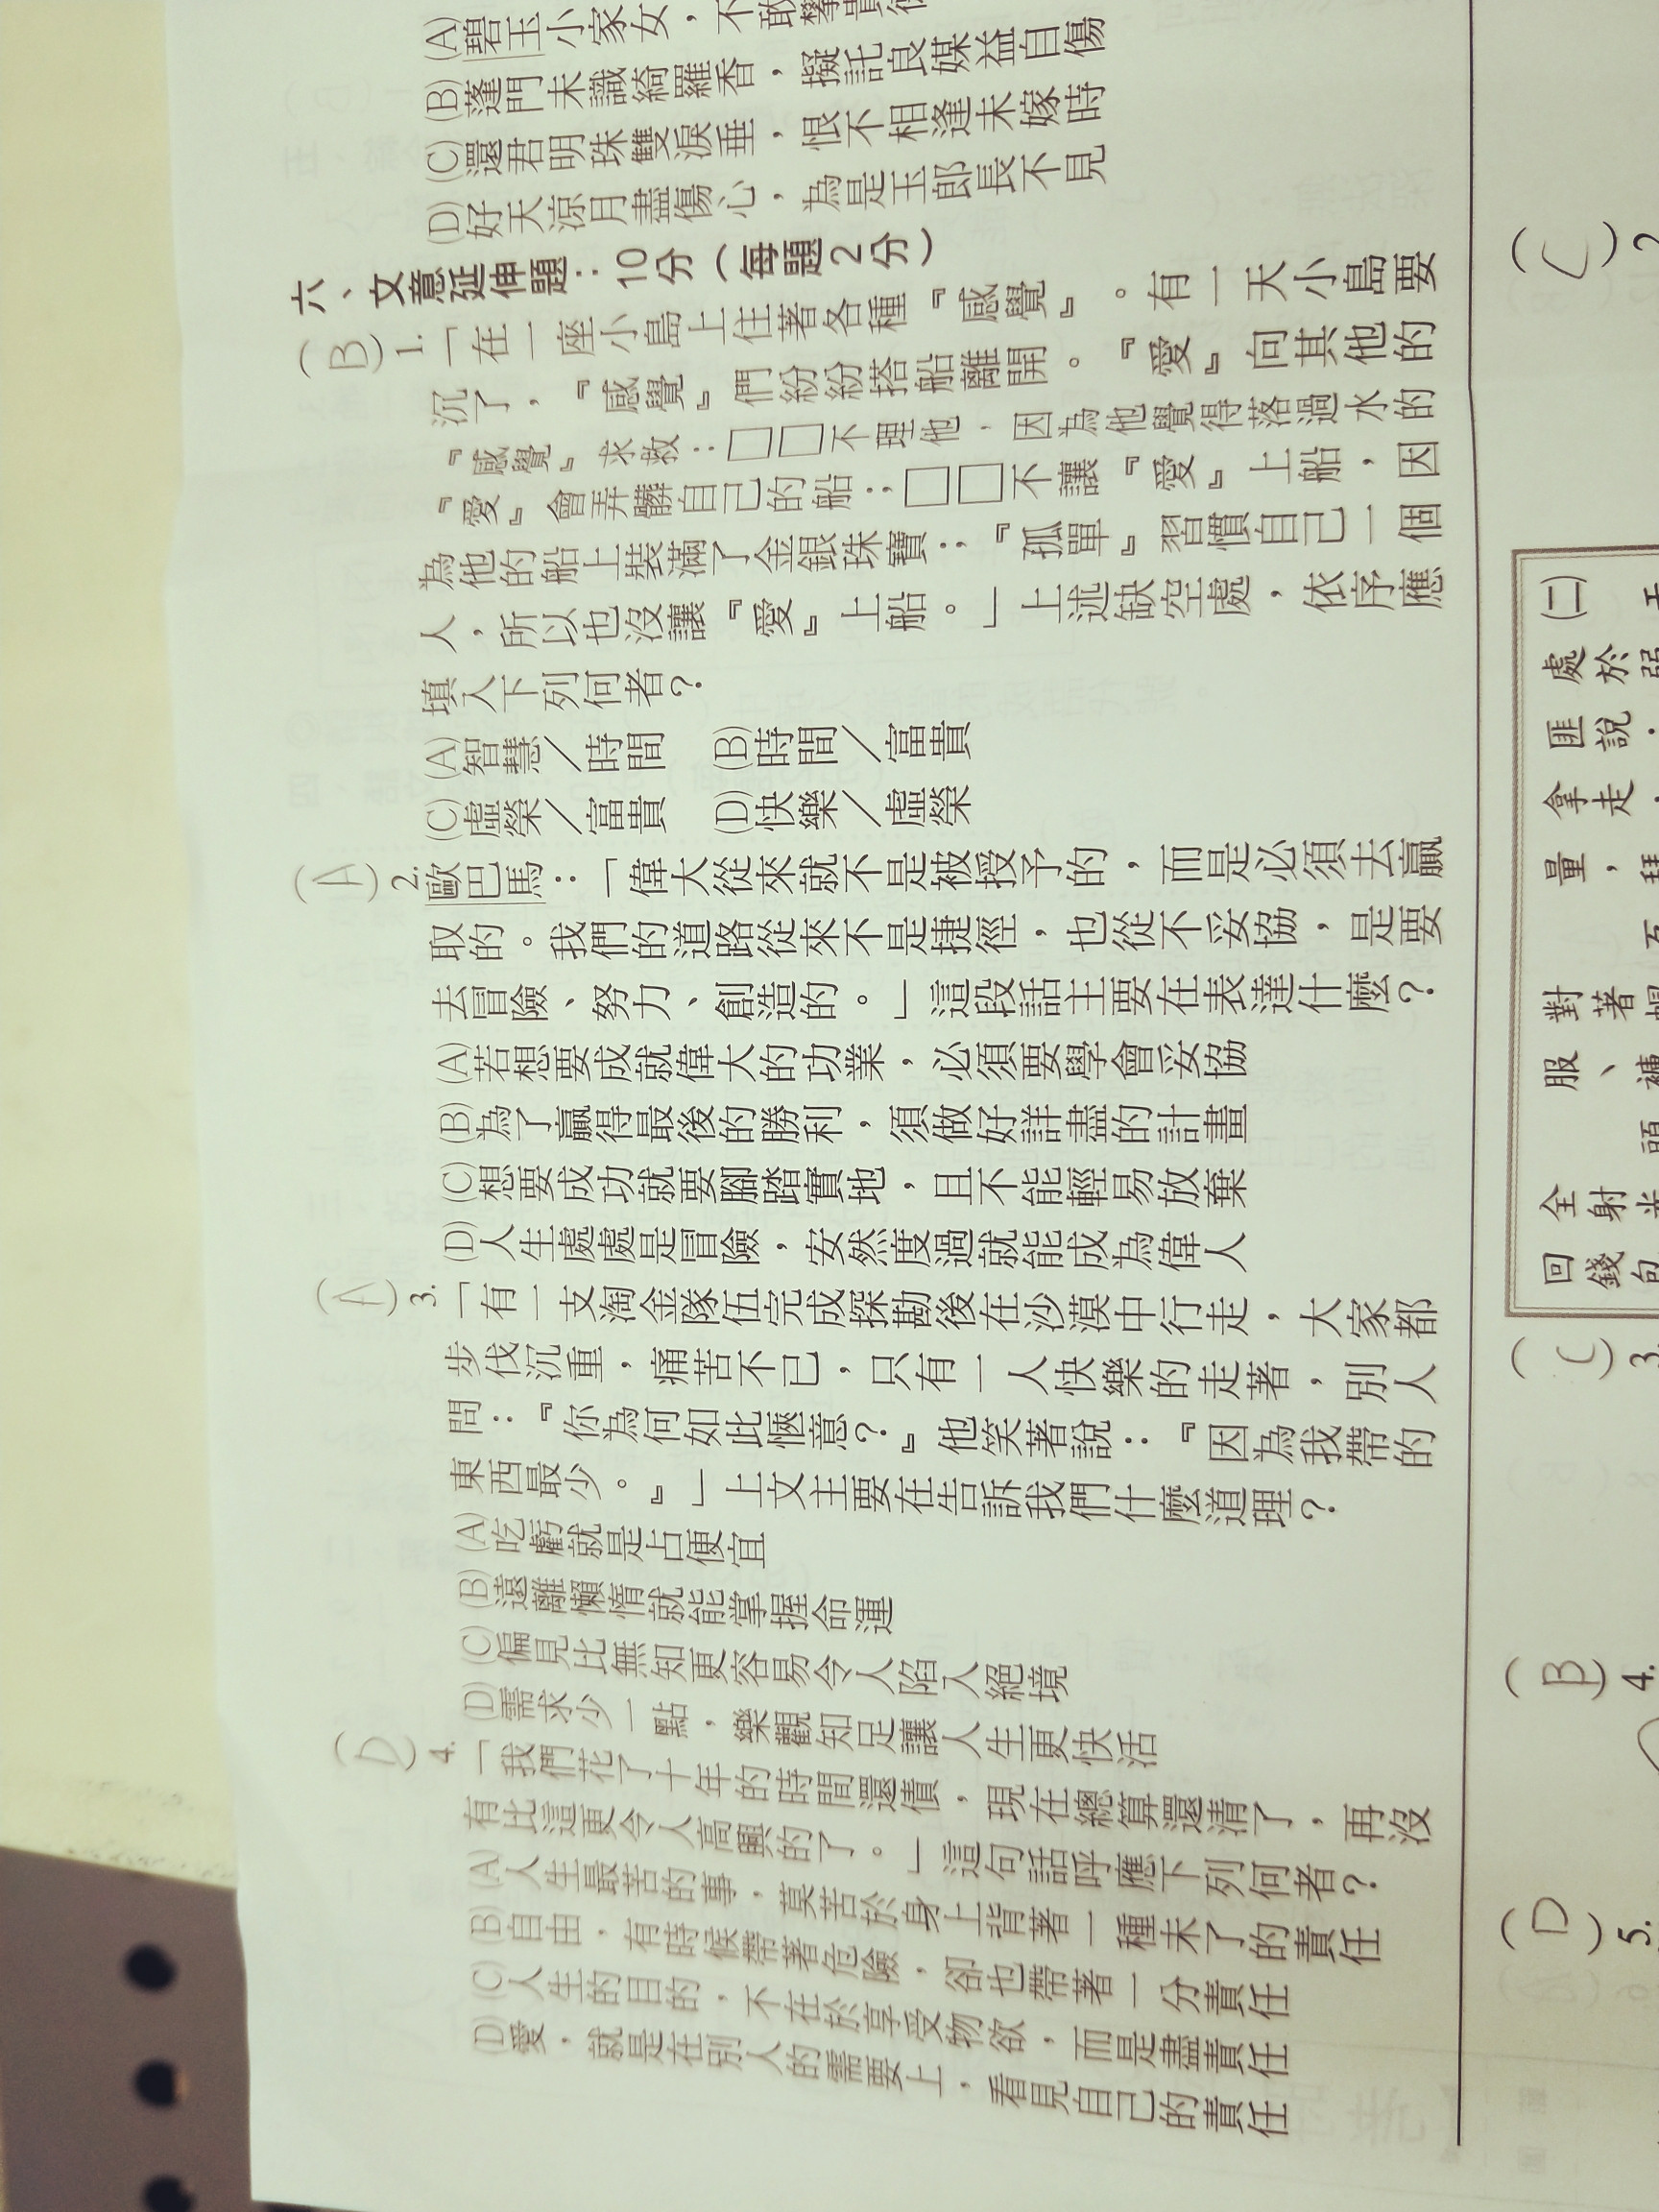 (A)碧玉小家女，不敢攀貴
(B)蓬門未識綺羅香，擬託良媒益自傷
(C)還君明珠雙淚垂，恨不相逢未嫁時
(D)好天涼月盡傷心，為是玉郎長不見
六、文意延伸題：10分（每題2分）
(B) 1.「在一座小島上住著各種『感覺』。有一天小島要
沉了，『感覺』們紛紛搭船離開。『愛』向其他的
『感覺』求救：□□不理他，因為他覺得落過水的
『愛』會弄髒自己的船；□□不讓『愛』上船，因
為他的船上裝滿了金銀珠寶；『孤單』習慣自己一個
人，所以也沒讓『愛』上船。」上述缺空處，依序應
填入下列何者？
(A)智慧／時間 (B)時間／富貴
(C)虛榮／富貴 (D)快樂／虛榮
(A) 2.歐巴馬：「偉大從來就不是被授予的，而是必須去贏
取的。我們的道路從來不是捷徑，也從不妥協，是要
去冒險、努力、創造的。」這段話主要在表達什麼？
(A)若想要成就偉大的功業，必須要學會妥協
(B)為了贏得最後的勝利，須做好詳盡的計畫
(C)想要成功就要腳踏實地，且不能輕易放棄
(D)人生處處是冒險，安然度過就能成為偉人
(A) 3.「有一支淘金隊伍完成探勘後在沙漠中行走，大家都
步伐沉重，痛苦不已，只有一人快樂的走著，別人
問：『你為何如此愜意？』他笑著說：『因為我帶的
東西最少。』」上文主要在告訴我們什麼道理？
(A)吃虧就是占便宜
(B)遠離懶惰就能掌握命運
(C)偏見比無知更容易令人陷入絕境
(D)需求少一點，樂觀知足讓人生更快活
(D) 4.「我們花了十年的時間還債，現在總算還清了，再沒
有比這更令人高興的了。」這句話呼應下列何者？
(A)人生最苦的事，莫苦於身上背著一種未了的責任
(B)自由，有時候帶著危險，卻也帶著一分責任
(C)人生的目的，不在於享受物欲，而是盡責任
(D)愛，就是在別人的需要上，看見自己的責任
(C) 2
(二)
處 匪 拿 量 對 服 全 回
於 說 走 ， 著 、 射 錢
(C) 3.
(B) 4.
(D) 5.